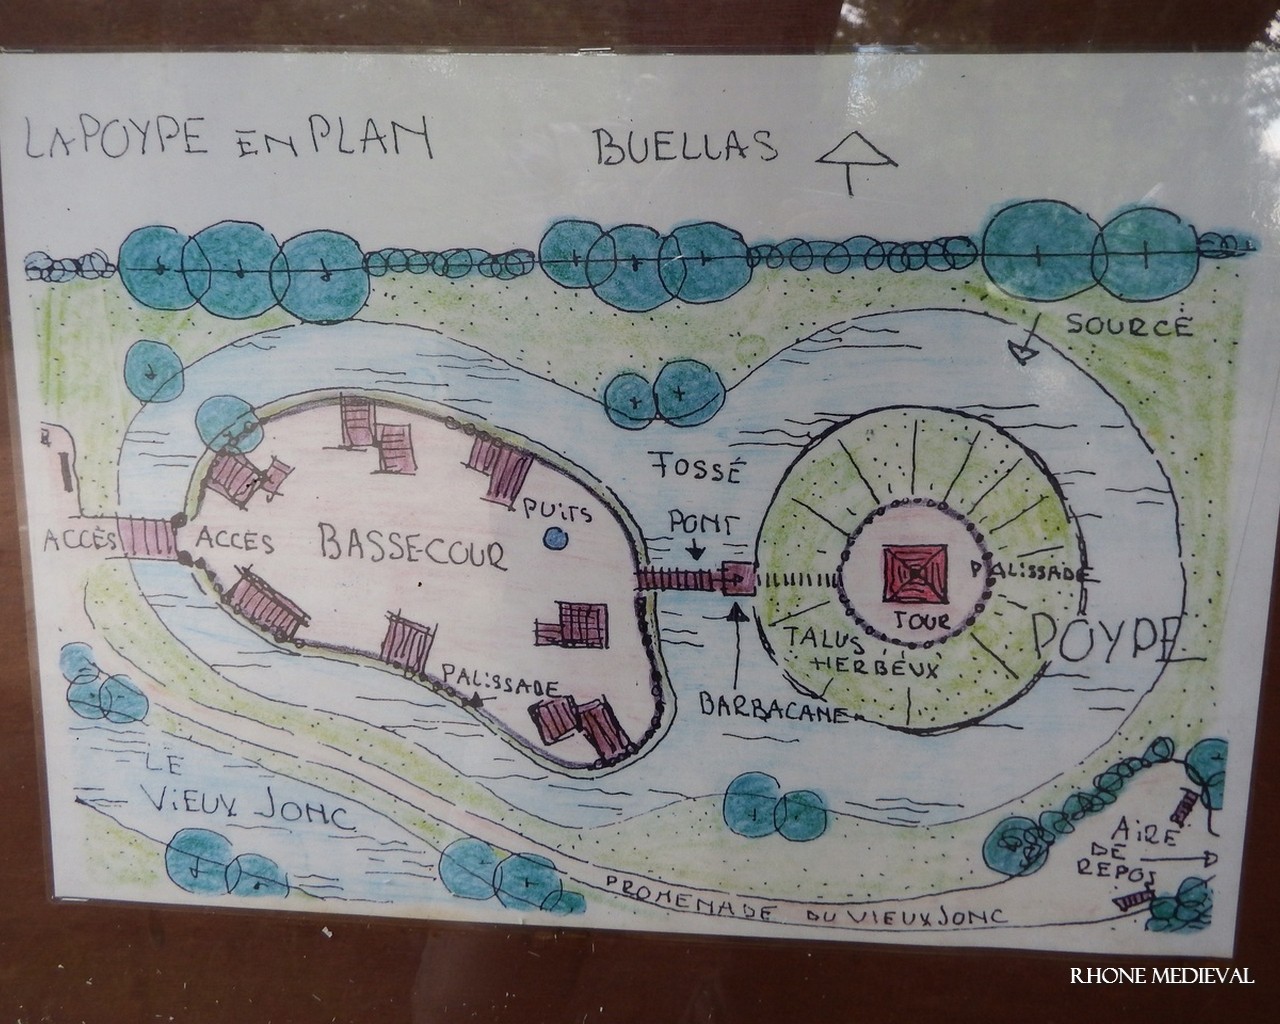 LA POYPE EN PLAN
BUELLAS
SOURCE
FOSSÉ
PUITS
PONT
ACCÈS
ACCÈS
BASSE-COUR
PALISSADE
TOUR
TALUS
HERBEUX
POYPE
PALISSADE
BARBACANE
LE
VIEUX JONC
AIRE
DE
REPOS
PROMENADE DU VIEUX JONC
RHONE MEDIEVAL